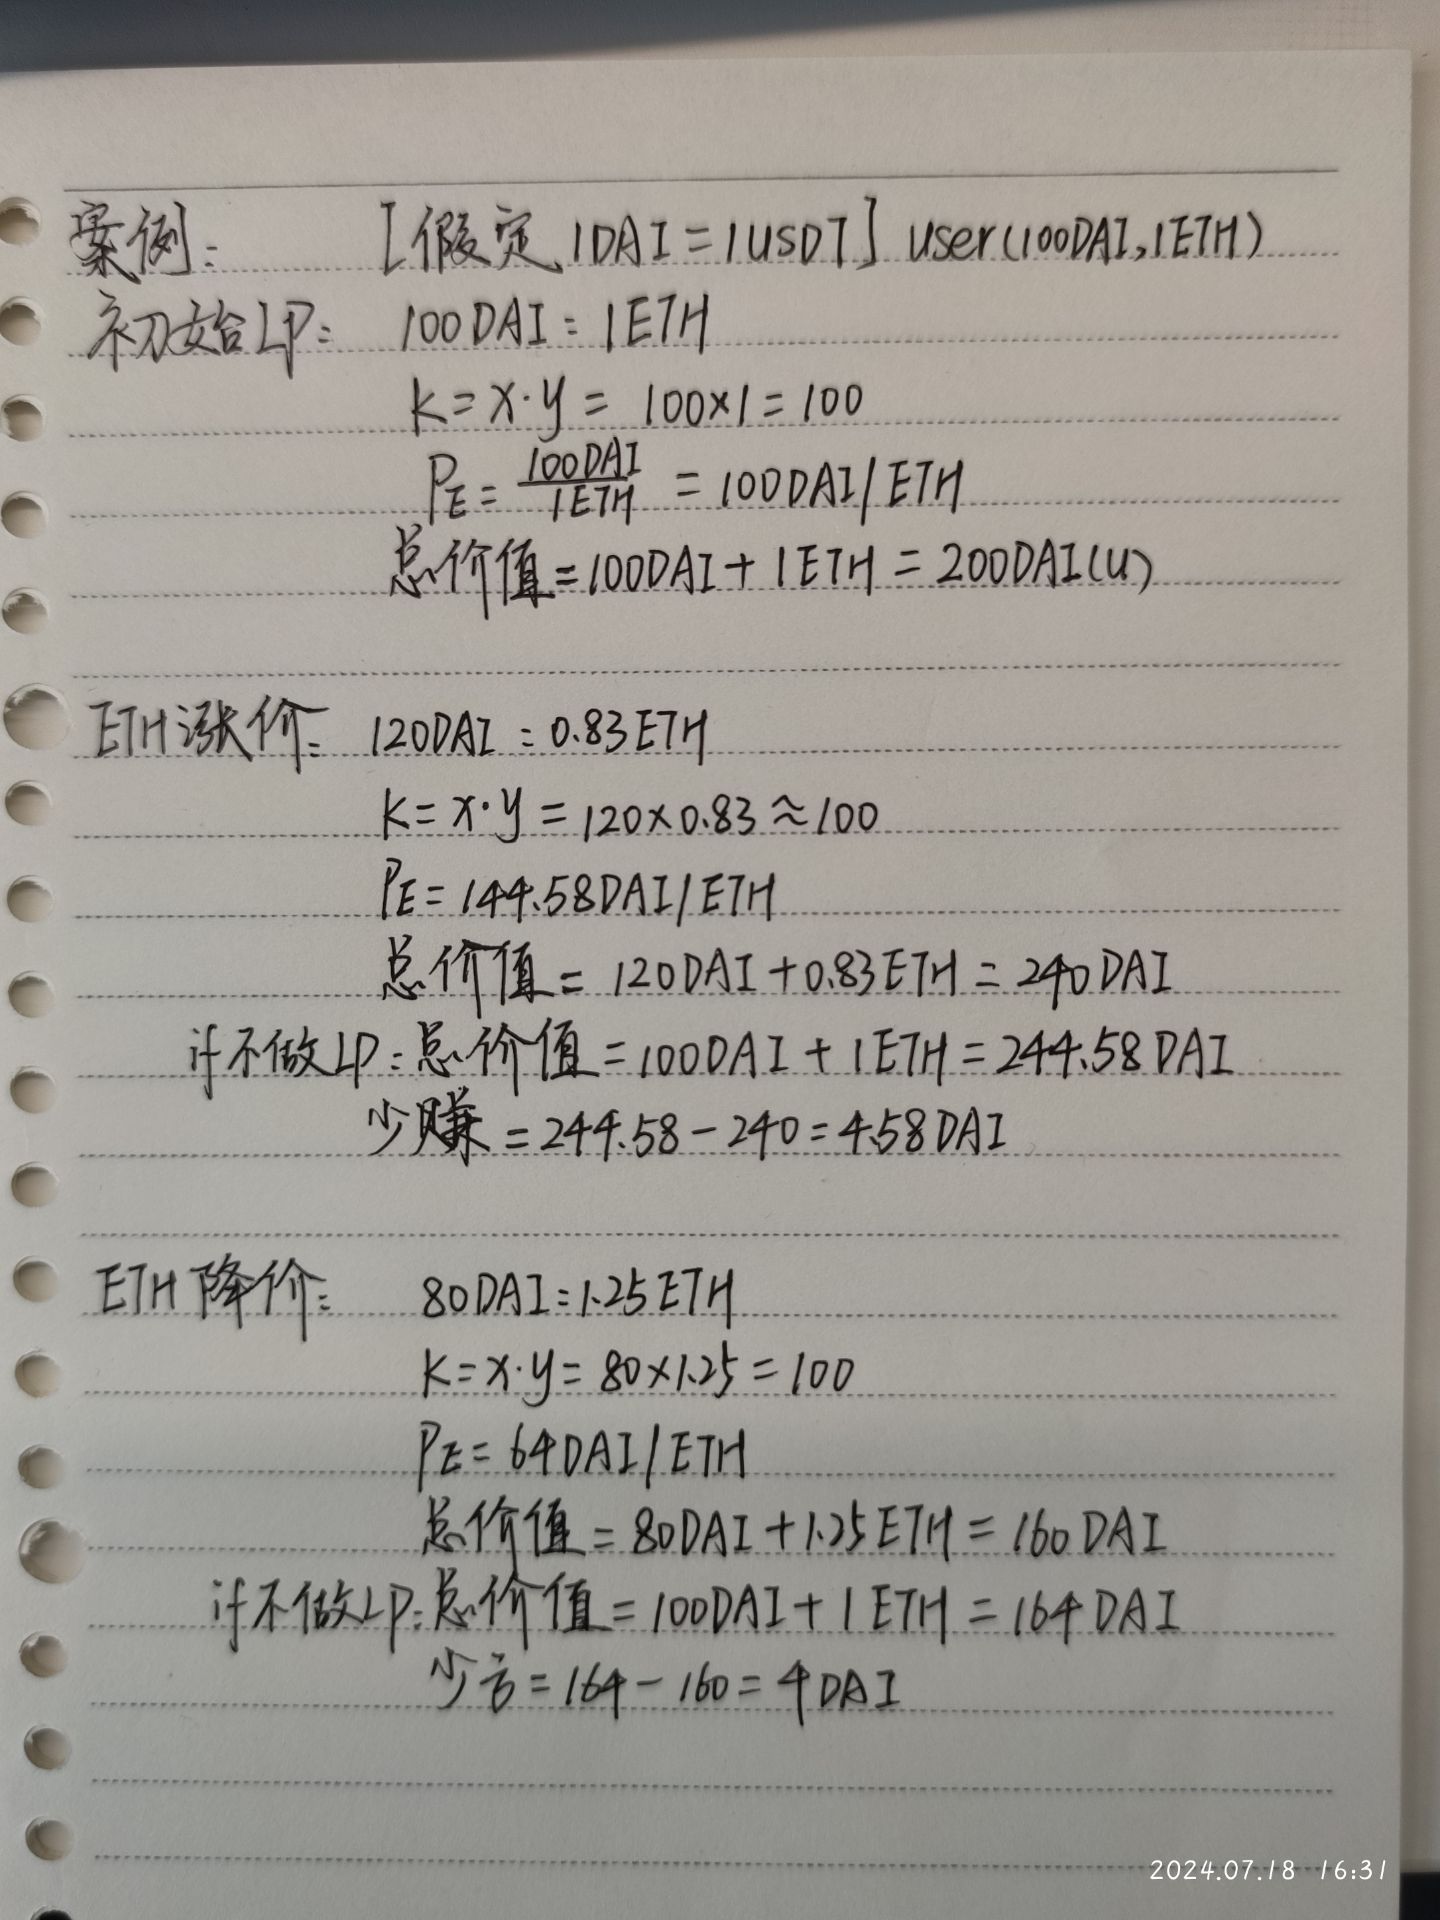 案例: [假定1DAI=1USDT] user(100DAI,1ETH)
初始LP: 100DAI:1ETH
K=x·y= 100×1=100
PE=100DAI/1ETH =100DAI/ETH
总价值=100DAI+1ETH=200DAI(U)
ETH涨价: 120DAI:0.83ETH
K=x·y=120×0.83≈100
PE=144.58DAI/ETH
总价值=120DAI+0.83ETH=240DAI
if不做LP:总价值=100DAI+1ETH=244.58DAI
少赚=244.58-240=4.58DAI
ETH降价: 80DAI:1.25ETH
K=x·y=80×1.25=100
PE=64DAI/ETH
总价值=80DAI+1.25ETH=160DAI
if不做LP:总价值=100DAI+1ETH=164DAI
少=164-160=4DAI
2024.07.18 16:31